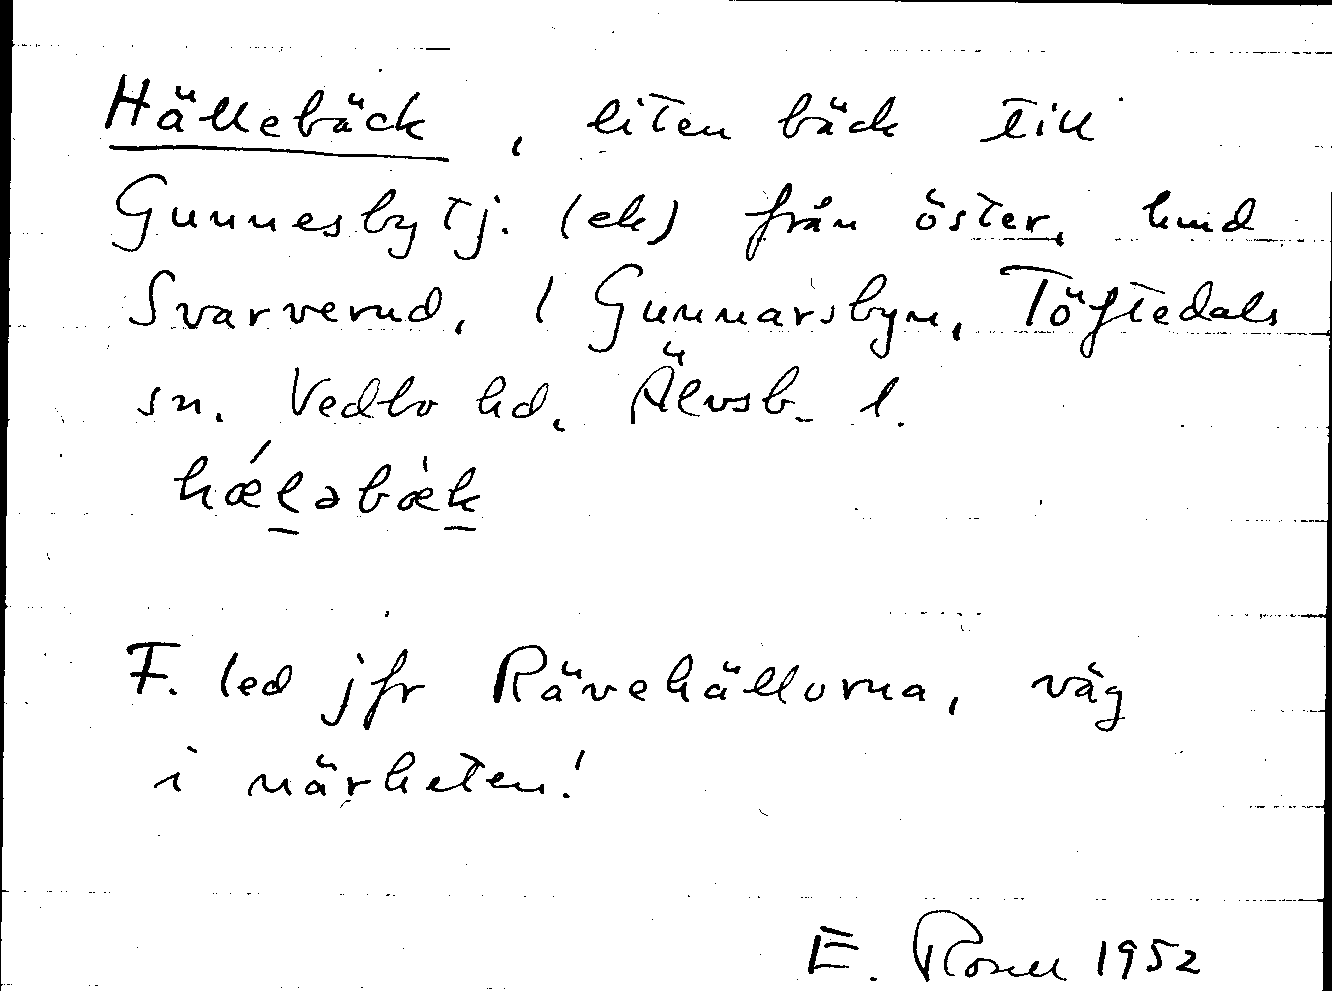 Hällebäck, liten bäck till
Gunnesbytj. (ek) från öster, hmd
Svarverud, i Gunnarsbyn, Töftedals
sn. Vedbo hd. Älvsb. l.
hǽl̲əbæ̀k̲
F. led jfr Rävehällorna, väg
i närheten!
E. Rosell 1952